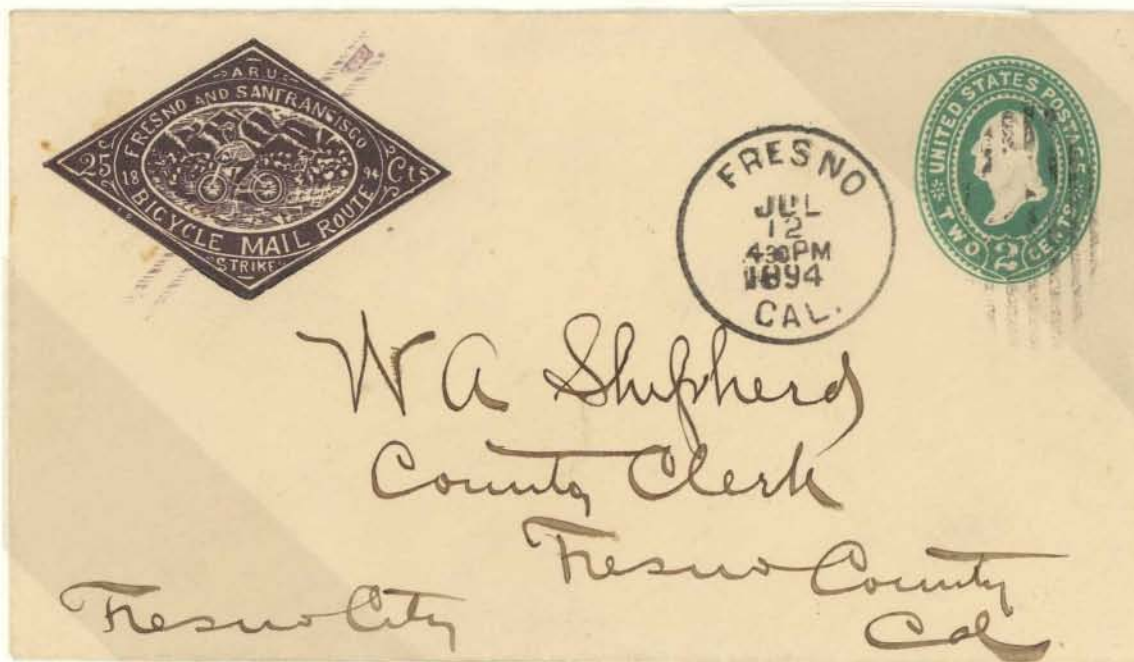 A.R.U.
FRESNO AND SANFRANSISCO
25 Cts
18 94
BICYCLE MAIL ROUTE
STRIKE
FRESNO
JUL
12
430PM
1894
CAL.
UNITED STATES POSTAGE
TWO 2 CENTS
W A Shepherd
County Clerk
Fresno County
Cal
Fresno City